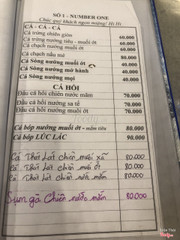 SỐ 1 - NUMBER ONE
Chúc quý khách ngon miệng! Hi Hi
CÁ - CÁ - CÁ
Cá trứng chiên giòn 60.000
Cá trứng nướng tiêu - muối ớt 60.000
Cá chạch nướng muối ớt 60.000
Cá chạch nấu mẻ 80.000
Cá Sòng nướng muối ớt 40.000
Cá Sòng nướng mỡ hành 40.000
Cá Sòng nướng mọi 40.000
CÁ HỒI
Đầu cá hồi chiên nước mắm 70.000
Đầu cá hồi nướng sa tế 70.000
Đầu cá hồi nướng muối ớt 70.000
Cá bớp nướng muối ớt - mắm tiêu 80.000
Cá bớp LÚC LẮC 90.000
Cá Thát Lát chiên muối xả 80.000
Cá Thát Lát chiên muối ớt 80.000
Cá Thát Lát chiên nước mắm 80.000
Sụn gà Chiên nước mắm 80.000